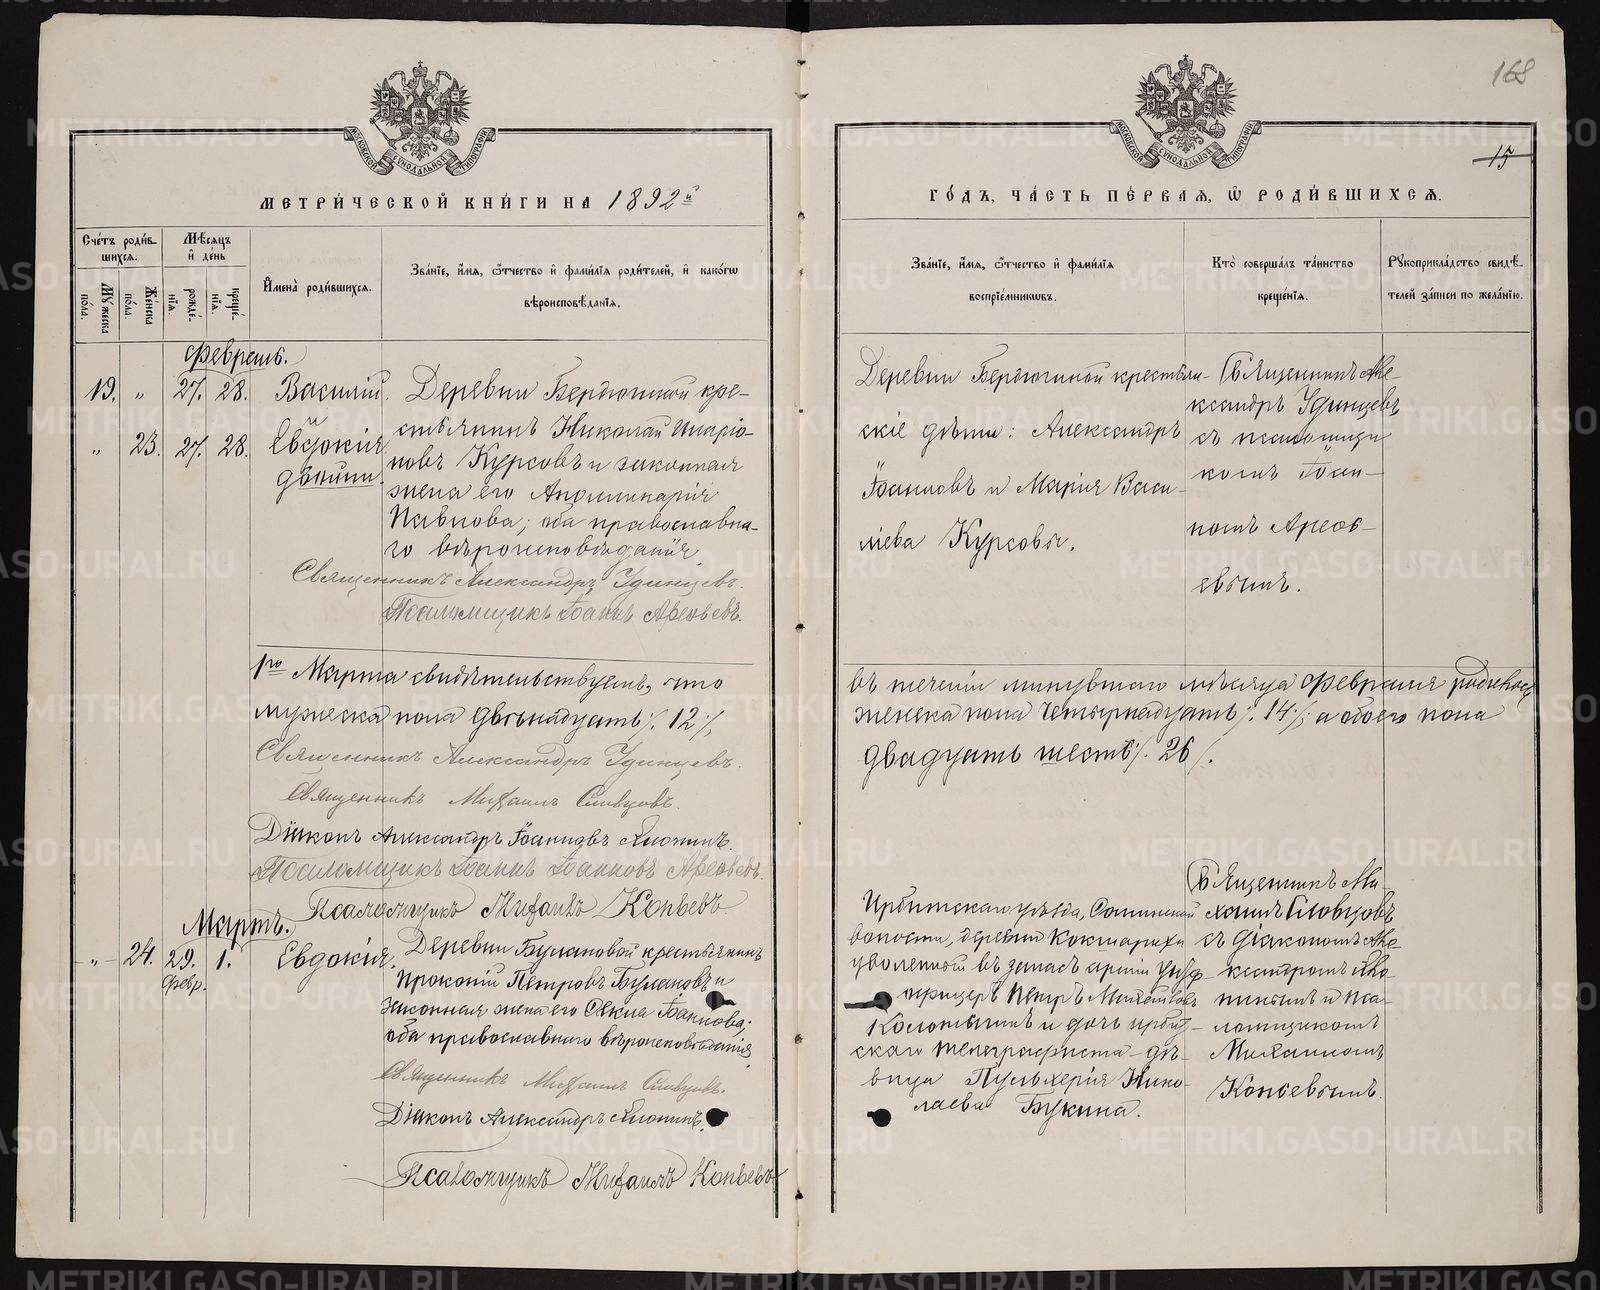 168
15
МОСКОВСКОЙ СѴНОДАЛЬНОЙ ТИПОГРАФІИ
МЕТРИ́ЧЕСКОЙ КНИ́ГИ НА 1892й
Сче́тъ роди́в-
шихсѧ.
Мѣ́сѧцъ
и҆ де́нь
Мꙋ́жеска
по́ла.
Же́нска
по́ла.
рожде́-
нїѧ.
креще́-
нїѧ.
И҆мена̀ роди́вшихсѧ.
Зва́нїе, и҆́мѧ, ѻ҆́тчество и҆ фами́лїѧ роди́телей, и҆ како́гѡ
вѣроисповѣ́данїѧ.
Февраль.
19. „ 27. 28. Василій
и
„ 23. 27. 28. Евдокія
двойни.
Деревни Бердюгиной кре-
стьянинъ Николай Иларіо-
новъ Курсовъ и законная
жена его Аполлинарія
Павлова; оба православна-
го вѣроисповѣданія
Священникъ Александръ Удинцевъ.
Псаломщикъ Іоаннъ Арефьевъ.
1го Марта свидѣтельствуемъ, что
мужеска пола двѣнадцать /. 12 ./,
Священникъ Александръ Удинцевъ.
Священникъ Михаилъ Словцовъ.
Діаконъ Александръ Іоанновъ
Псаломщикъ Іоаннъ Іоанновъ Арефьевъ.
Псаломщикъ Михаилъ Копьевъ
Мартъ.
„ 24. 29. 1. Евдокія.
Февр.
Деревни Булановой крестьянинъ
Прокопій Петровъ Булановъ и
законная жена его Ѳекла Іоаннова;
оба православнаго вѣроисповѣданія
Священникъ Михаилъ Словцовъ.
Діаконъ Александръ
Псаломщикъ Михаилъ Копьевъ
ГО́ДЪ, ЧА́СТЬ ПЕ́РВАѦ, Ѡ҆ РОДИ́ВШИХСѦ.
Зва́нїе, и҆́мѧ, ѻ҆́тчество и҆ фами́лїѧ
воспрїе́мниковъ.
Кто̀ соверша́лъ та́инство
креще́нїѧ.
Рꙋкоприкла́дство свидѣ́-
телей за́писи по жела́нїю.
Деревни Бердюгиной крестьян-
скіе дѣти: Александръ
Іоанновъ и Марія Васи-
льева Курсовы.
Священникъ Але-
ксандръ Удинцевъ
съ псаломщи
комъ Іоан-
номъ Ареѳ-
евымъ.
въ теченіи минувшаго мѣсяца Февраля родилось
женска пола четырнадцать /. 14 ./; а обоего пола
двадцать шесть /. 26 /.
Ирбитскаго уѣзда,
волости, деревни Кокшарихи
уволенный въ запасъ арміи Унтеръ
офицеръ Петръ
и дочь ирбит-
скаго телеграфиста – дѣ-
вица Пульхерія Нико-
лаева Букина.
Священникъ Ми-
хаилъ Словцовъ
съ діакономъ Але-
ксандромъ
и пса-
ломщикомъ
Михаиломъ
Копьевымъ.
METRIKI.GASO-URAL.RU